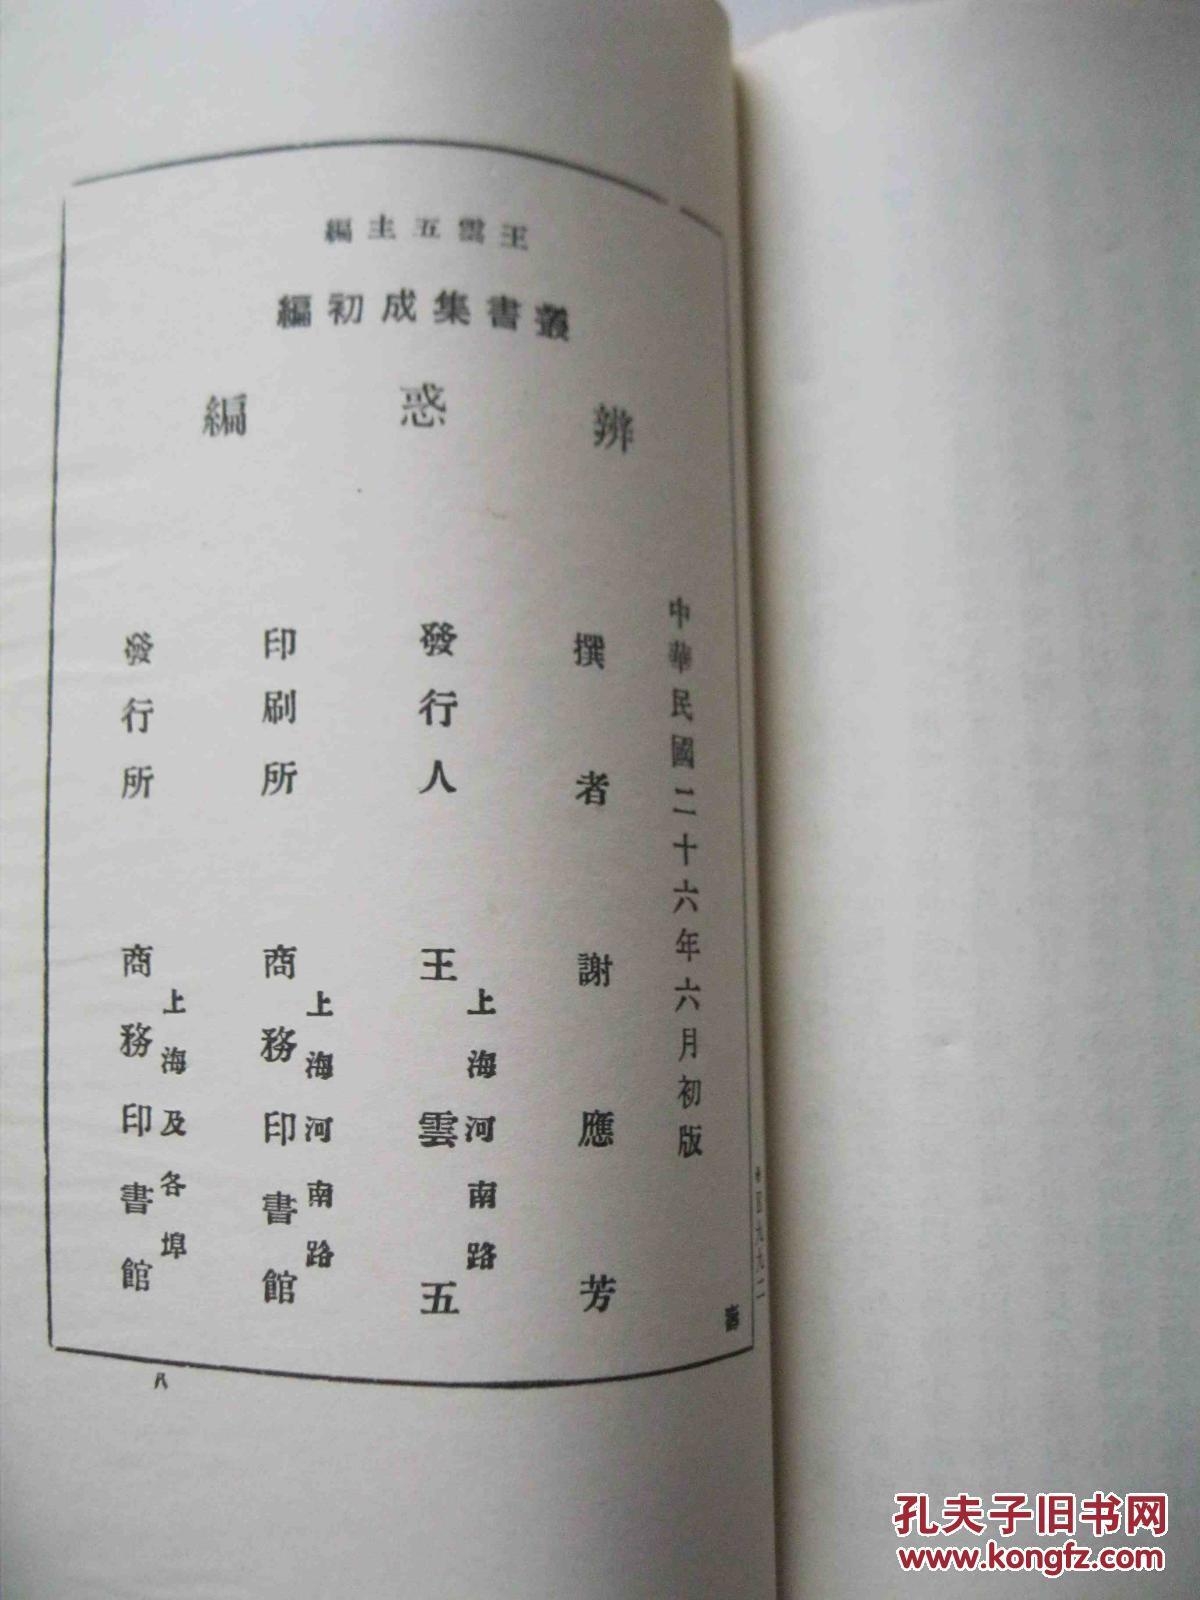 王雲五主編
叢書集成初編
辨惑編
中華民國二十六年六月初版
撰者 謝應芳
發行人 王雲五
上海河南路
印刷所 商務印書館
上海河南路
發行所 商務印書館
上海及各埠
孔夫子旧书网
www.kongfz.com